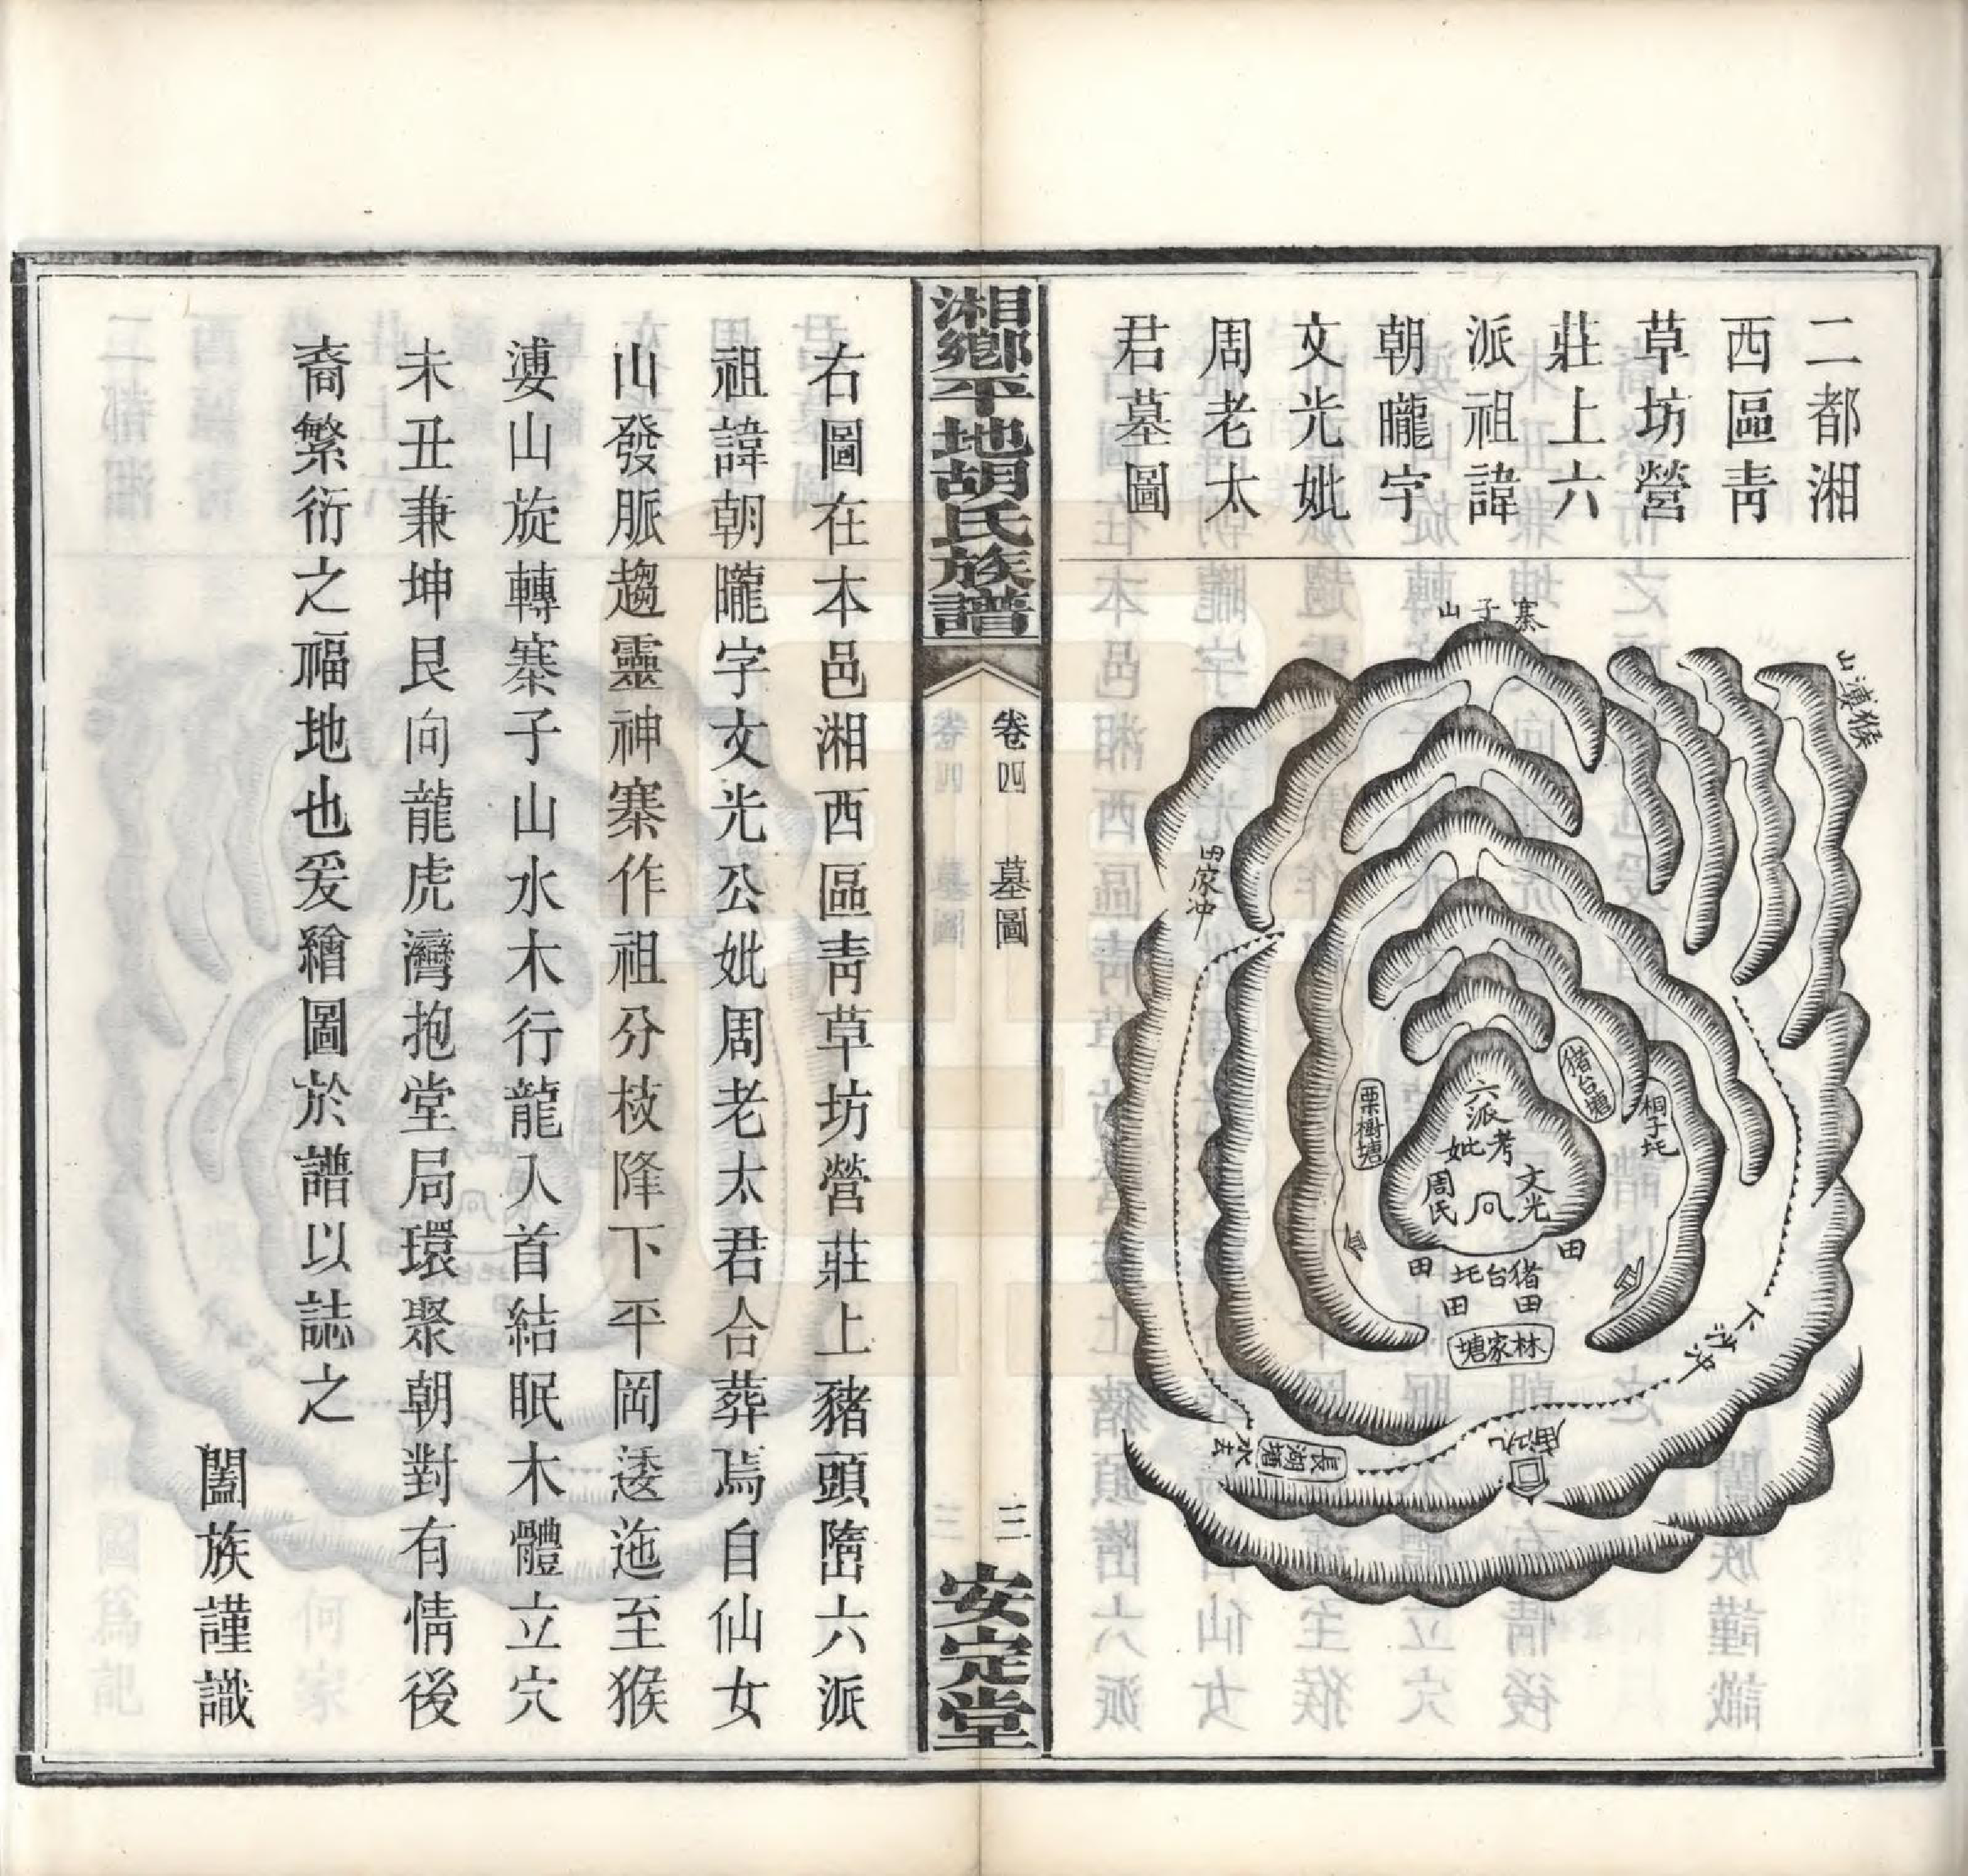 二都湘
西區青
草坊營
莊上六
派祖諱
朝曨字
文光妣
周老太
君墓圖
寨子山
猴漊山
田家冲
猪台塘
桐子坵
栗樹塘
六派
考妣
文光
周氏
田
田
猪台坵
田
田
林家塘
下沙冲
長湖塘
水去
湘鄉平地胡氏族譜
卷四
墓圖
三
安定堂
右圖在本邑湘西區青草坊營莊上豬頭隋六派
祖諱朝曨字文光公妣周老太君合葬焉自仙女
山發脈趨靈神寨作祖分枝降下平岡逶迤至猴
漊山旋轉寨子山水木行龍入首結眠木體立穴
未丑兼坤艮向龍虎灣抱堂局環聚朝對有情後
裔繁衍之福地也爰繪圖於譜以誌之
闔族謹識